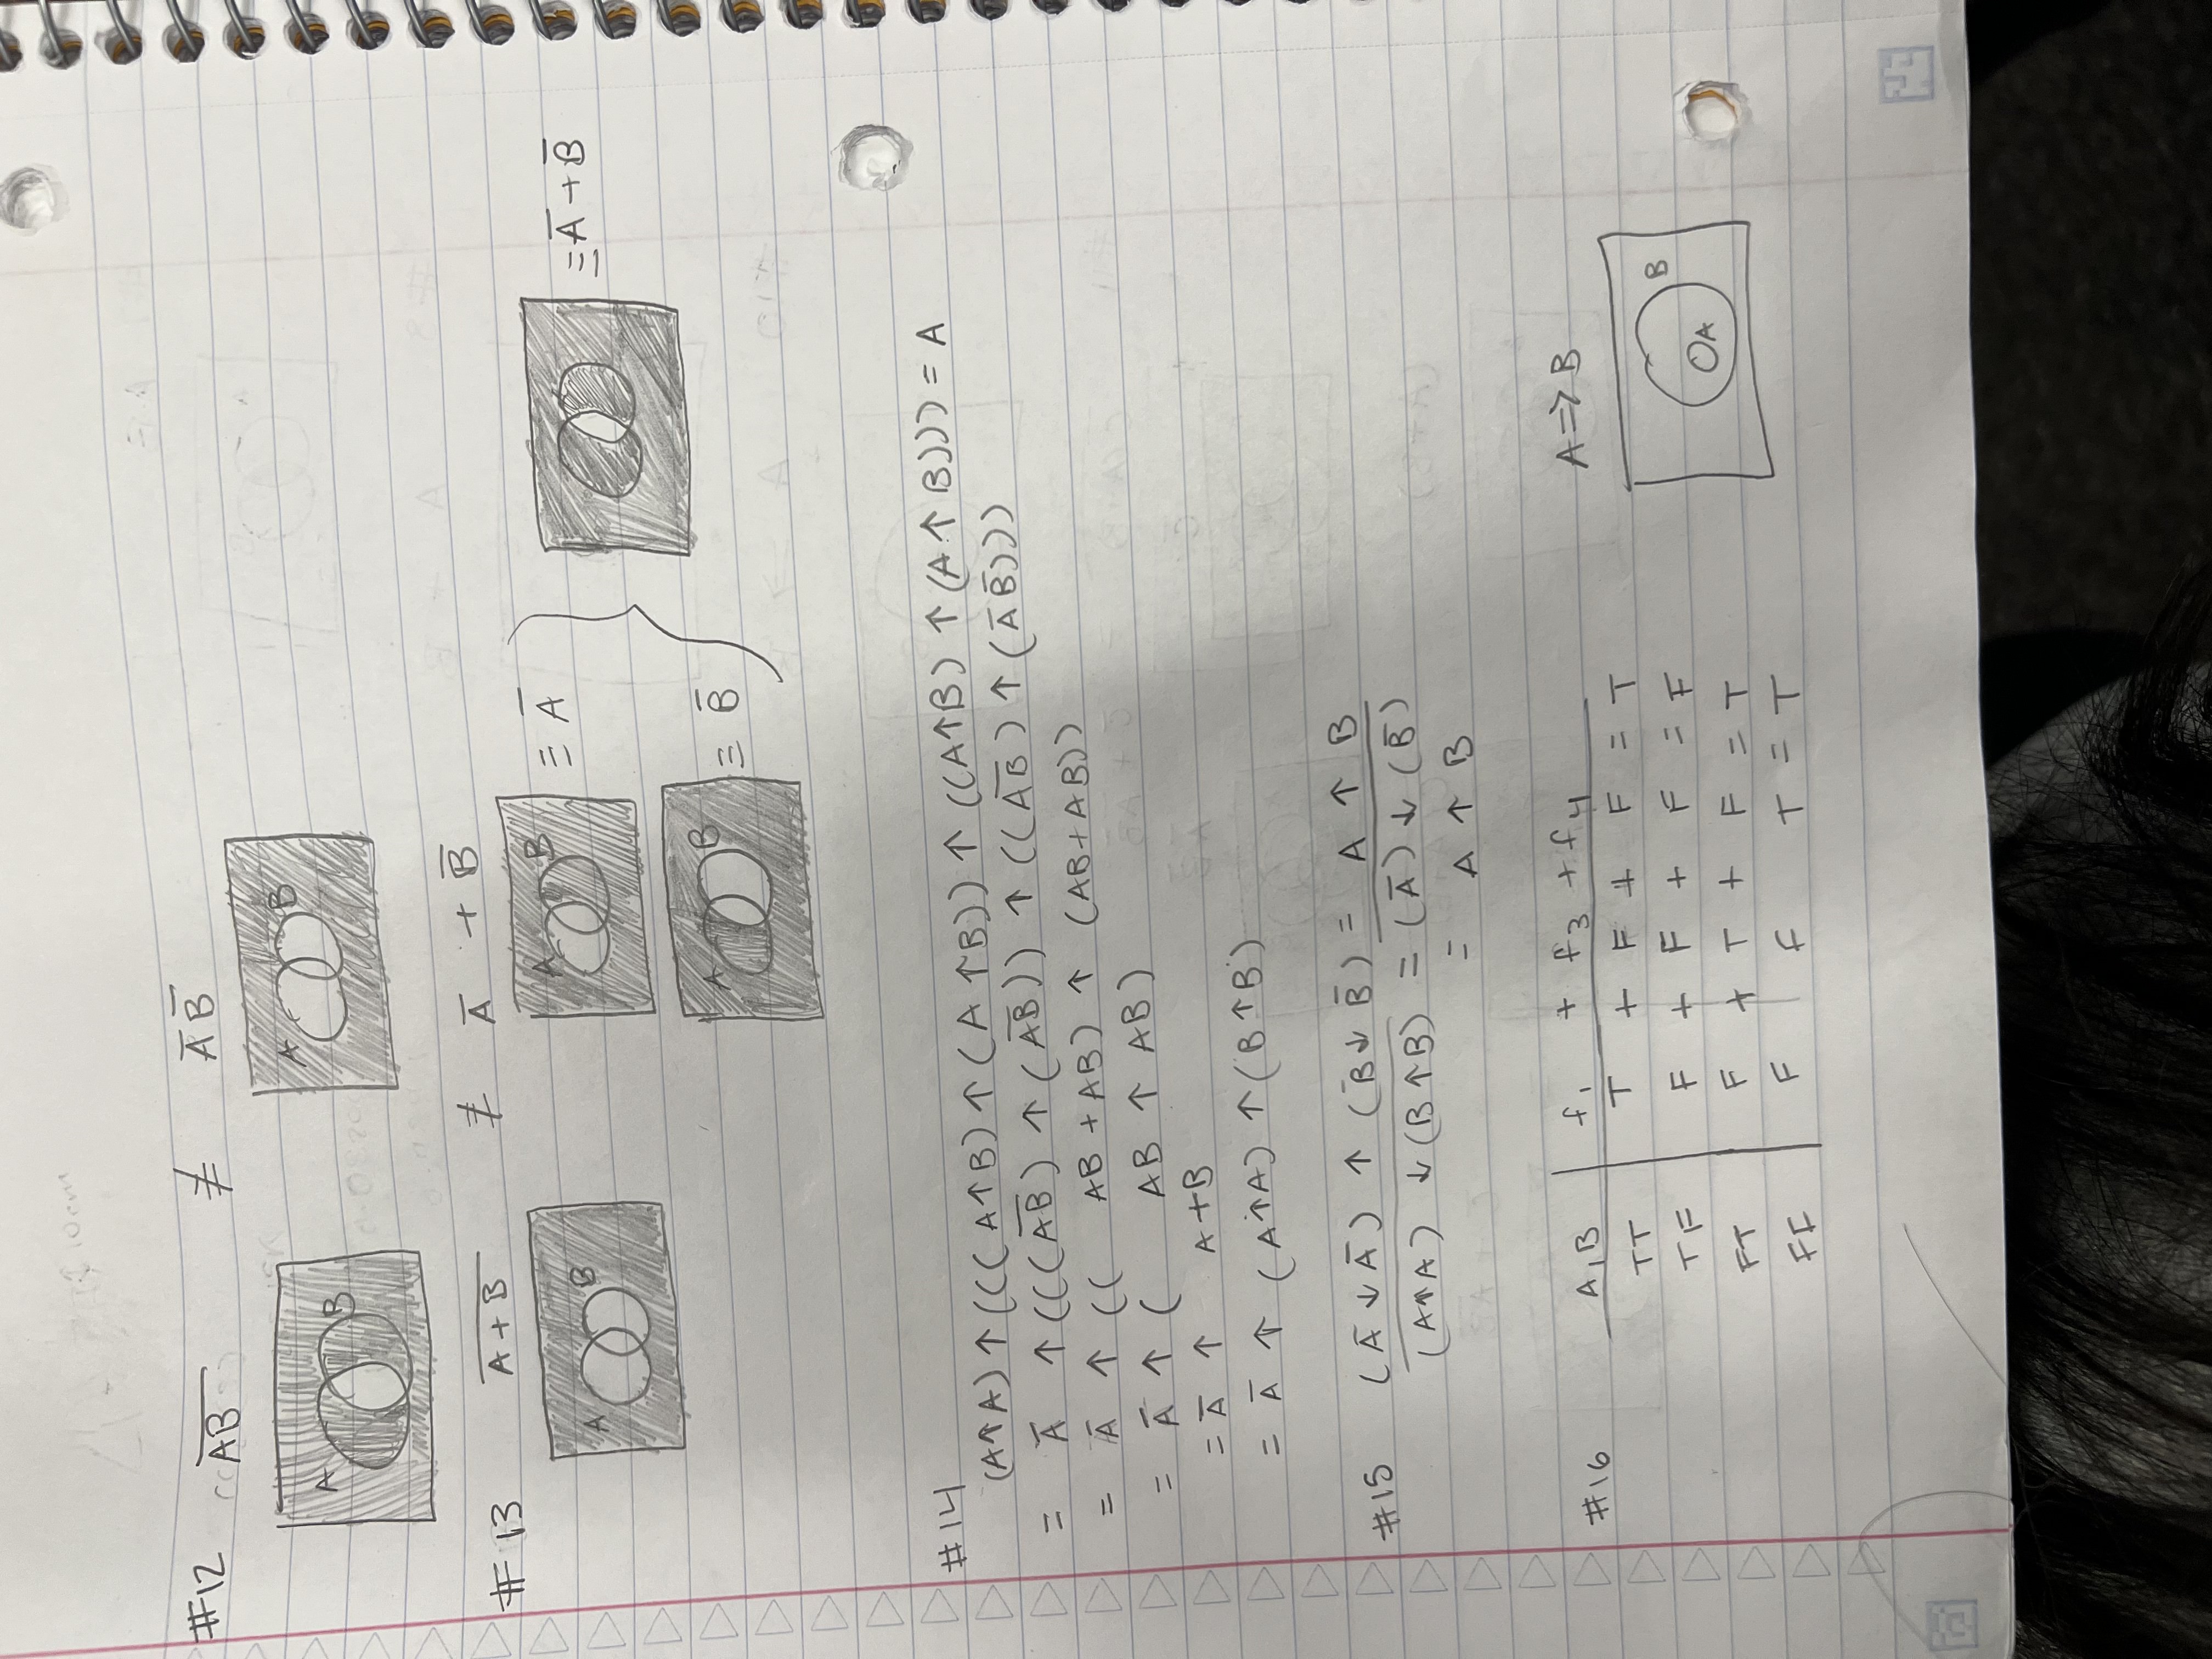 #12 A̅B̅ ≢ A̅ B̅
A B
A B
#13 A̅ ̅+̅ ̅B̅ ≢ A̅ + B̅
A B
A B ≡ A̅
≡ A̅ + B̅
A B ≡ B̅
#14
(A↑A) ↑ (((A↑B) ↑ (A↑B)) ↑ ((A↑B) ↑ (A↑B))) = A
= A̅ ↑ (((A̅B̅) ↑ (A̅B̅)) ↑ ((A̅B̅) ↑ (A̅ B̅)))
= A̅ ↑ (( AB + AB) ↑ (AB+AB))
= A̅ ↑ ( AB ↑ AB)
= A̅ ↑ A+B
= A̅ ↑ (A↑A) ↑ (B↑B)
#15 (A̅ ↓ A̅) ↑ (B̅ ↓ B̅) = A ↑ B
(A↑A) ↓ (B↑B) = (A̅) ↓ (B̅)
= A ↑ B
#16 A,B f₁ + f₃ + f₄ A ⇒ B
TT T + F + F = T
TF F + F + F = F
FT F + T + F = T
FF F F T = T
B
A